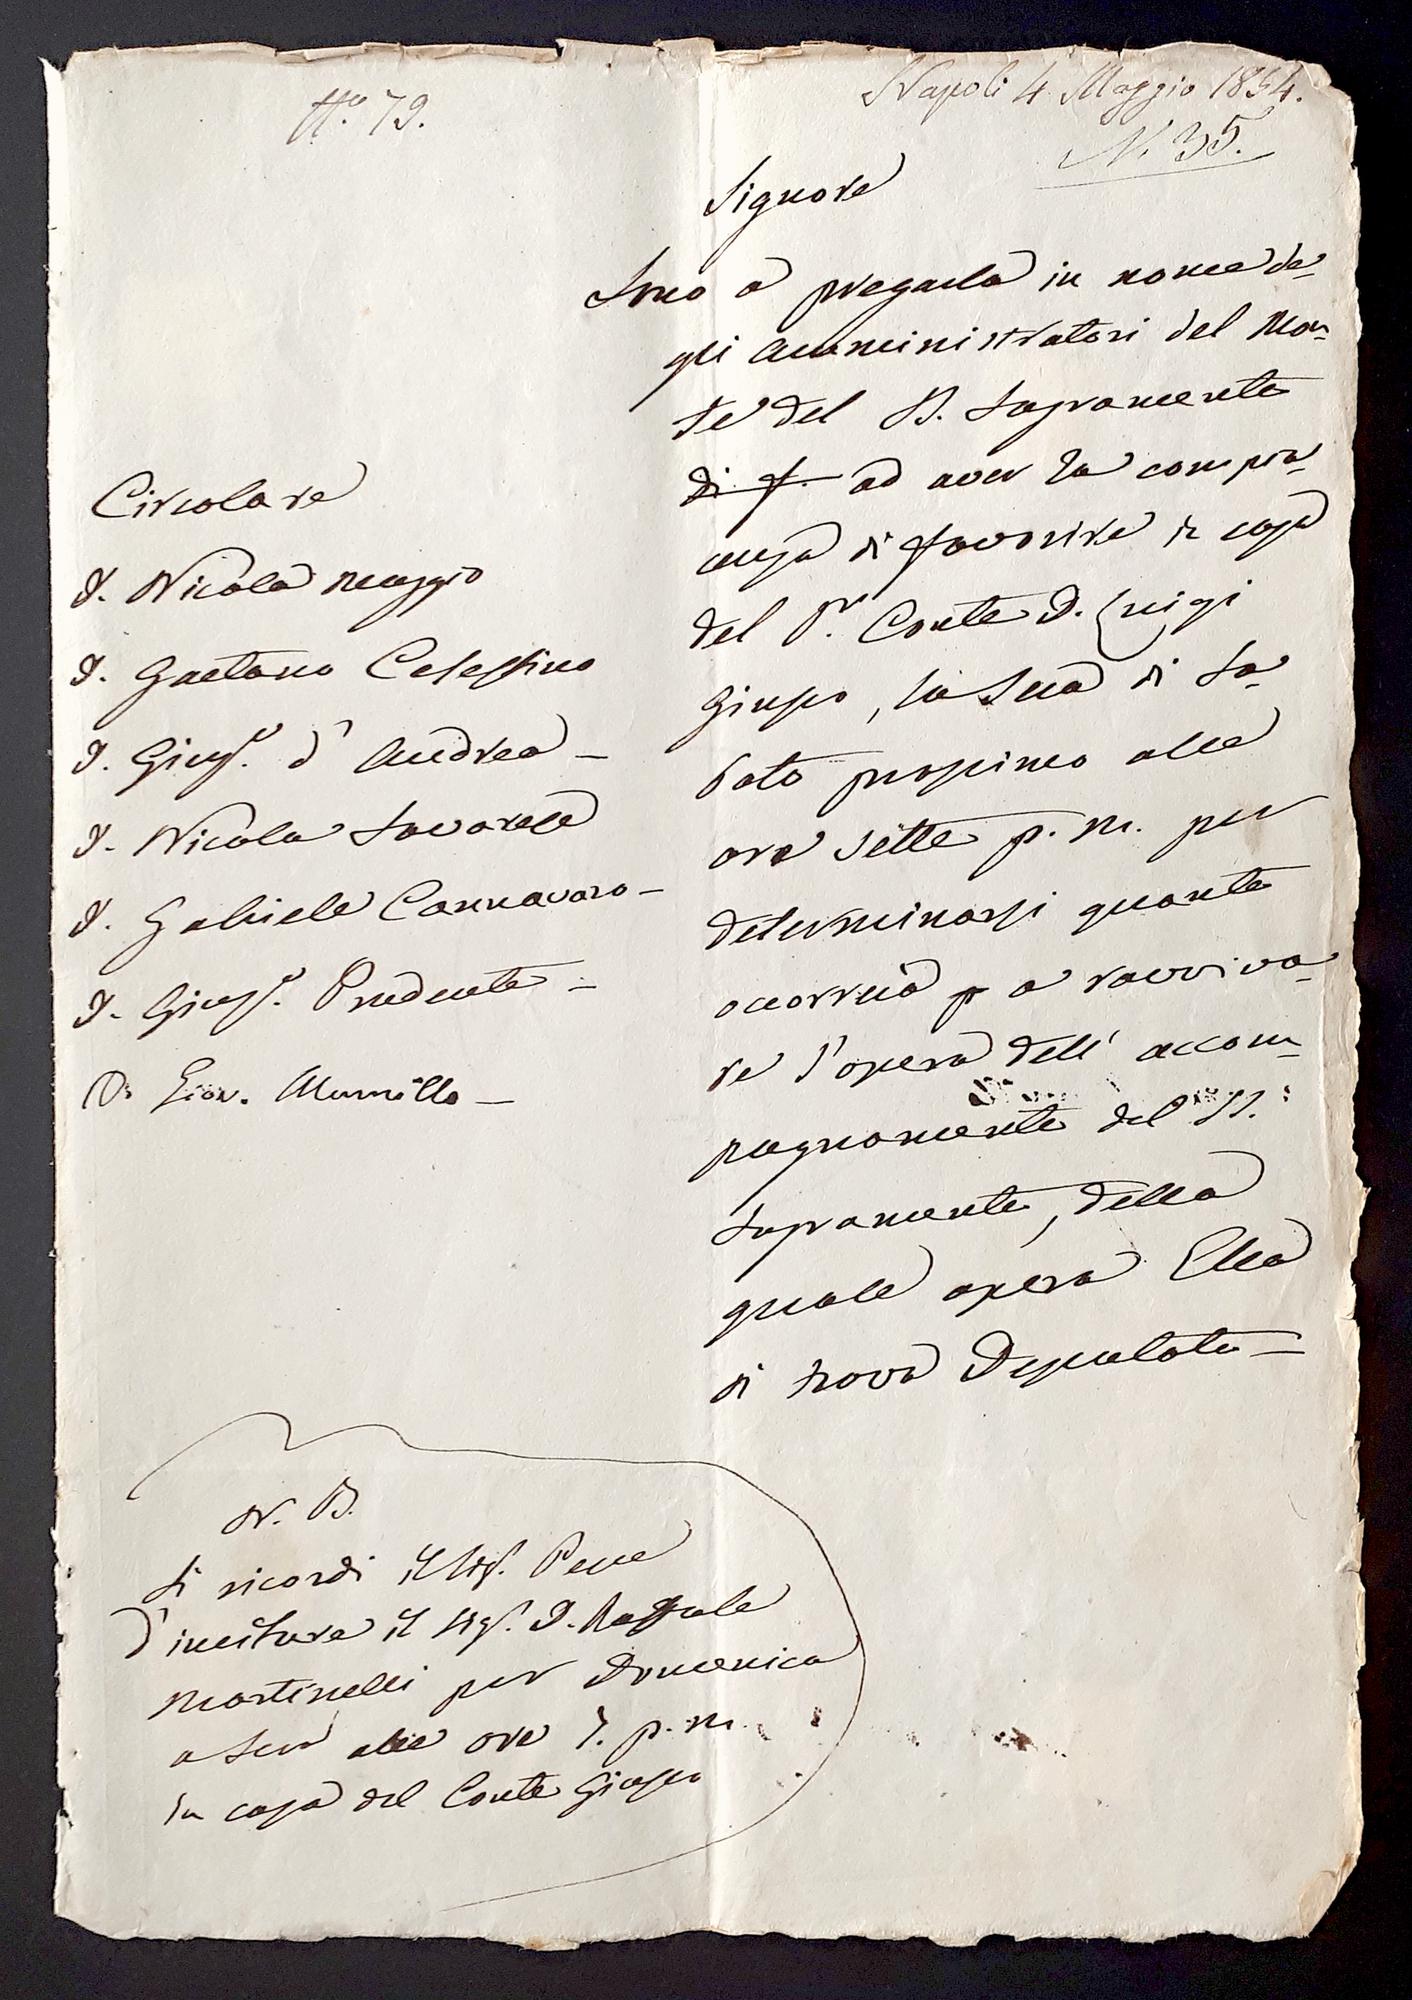 N.° 79.
Napoli 4 Maggio 1854.
N. 35.
Signore
Sono a pregarla in nome de-
gli Amministratori del Mon-
te del S. Sagramento
di f. ad aver la compia-
cenza di favorire in casa
del S.r Conte D. Luigi
Giusso, la sera di Sa-
bato prossimo alle
ore sette p. m. per
determinarsi quanto
occorrerà p a ravviva-
re l'opera dell' accom-
pagnamento del SS.
Sagramento, della
quale opera Ella
si trova Deputato —
Circolare
D. Nicola Maggio
D. Gaetano Celestino
D. Gius.e d' Andrea —
D. Nicola Savarese
D. Gabriele Cannavaro —
D. Gius.e Prudente —
D. Giov. Murillo —
N. B.
Si ricordi il Sig.r
d'invitare il Sig.r D. Raffaele
Martinelli per Domenica
a sera alle ore 7. p. m.
in casa del Conte Giusso